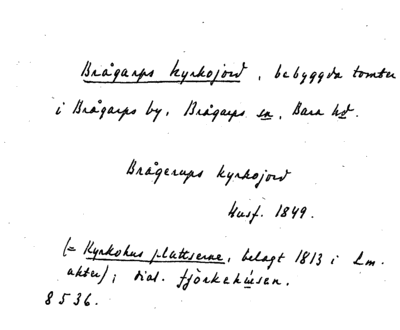 Brågarps kyrkojord, bebyggda tomter
i Brågarps by, Brågarps sn, Bara hd.
Brågerups kyrkojord
Husf. 1849.
(= Kyrkohus plattserne, belagt 1813 i Lm.
akter); dial. fjörkehusen.
8536.